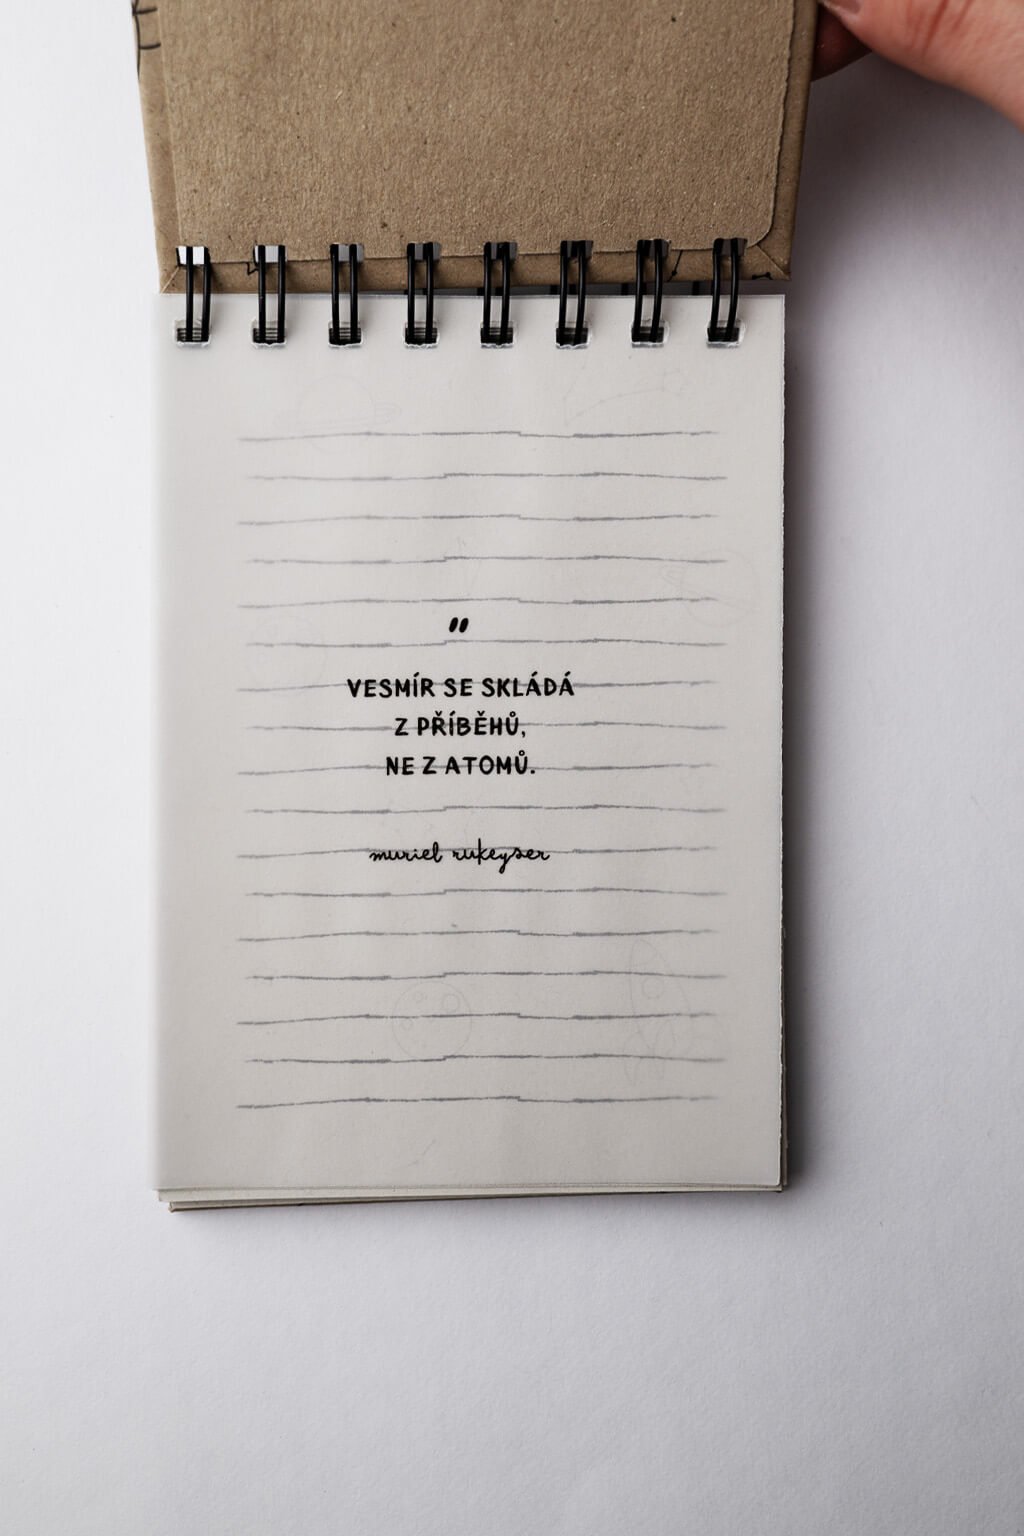 "
VESMÍR SE SKLÁDÁ
Z PŘÍBĚHŮ,
NE Z ATOMŮ.
muriel rukeyser